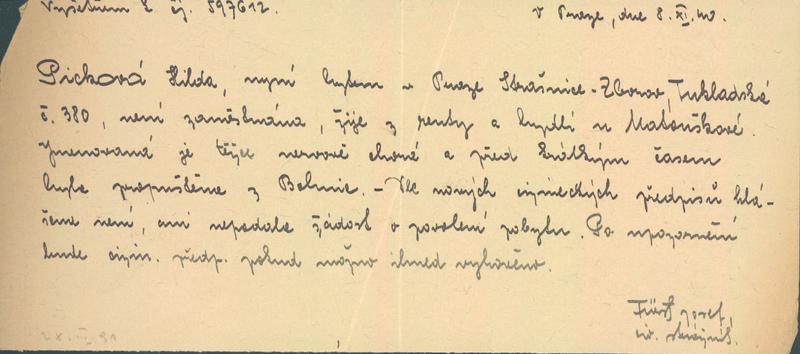 Vyšetřen k čj. 597612. v Praze, dne 8.XI.40.
Picková Hilda, nyní bytem v Praze Strašnice-Zborov, Tukladská
č. 380, není zaměstnána, žije z renty a bydlí u Matouškové.
Jmenovaná je těžce nervově chorá a před krátkým časem
byla propuštěna z Bohnic. - Dle nových cizineckých předpisů hlá-
šena není, ani nepodala žádost o povolení pobytu. Po upozornění
bude cizin. předp. pokud možno ihned vyhověno.
Fürst Josef,
28.XI.31